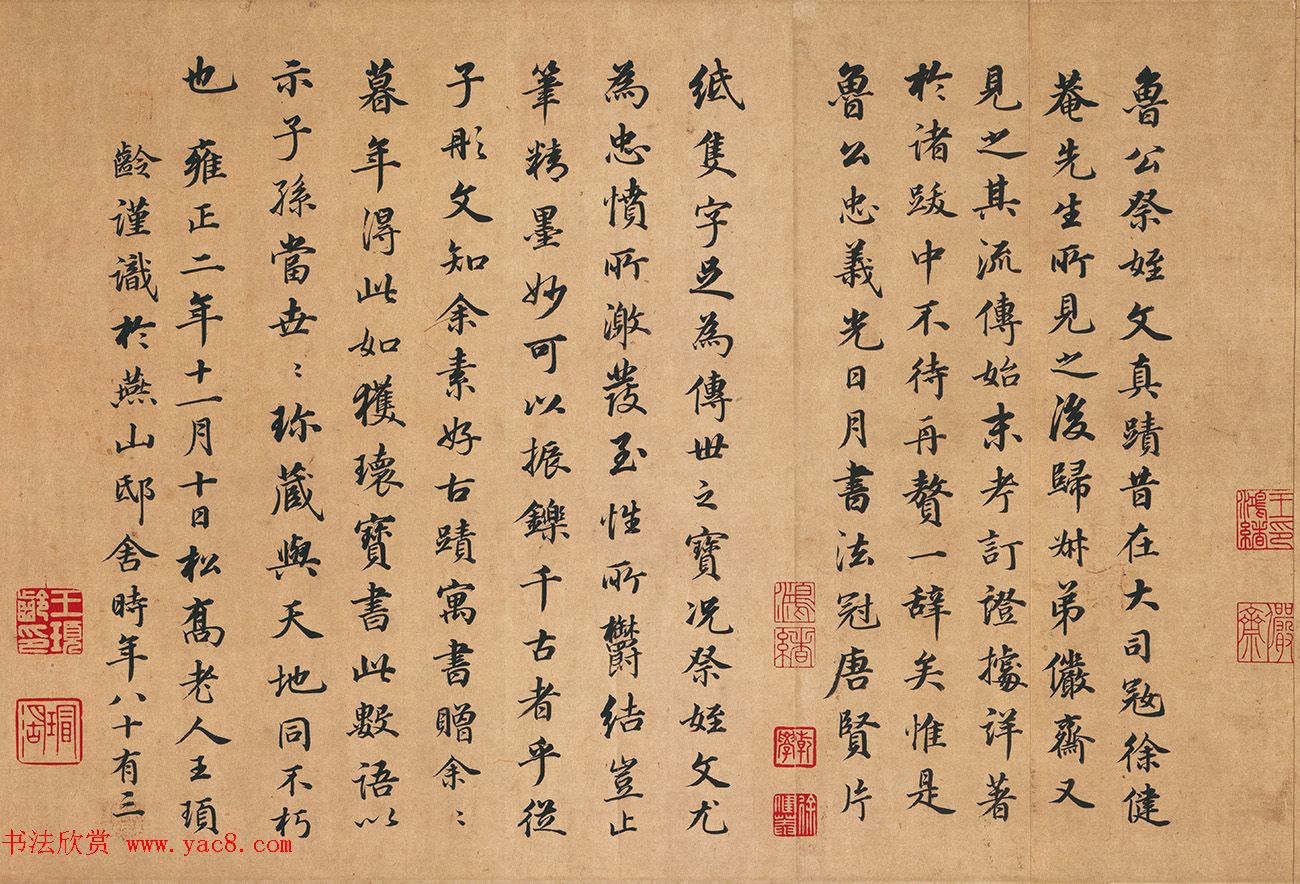 魯公祭姪文真蹟昔在大司寇徐健
菴先生所見之後歸叔弟儼齋又
見之其流傳始末考訂證據詳著
於諸跋中不待再贅一辭矣惟是
魯公忠義光日月書法冠唐賢片
紙隻字足為傳世之寶況祭姪文尤
為忠憤所激發至性所鬱結豈止
筆精墨妙可以振鑠千古者乎從
子彤文知余素好古蹟寓書贈余〻
暮年得此如獲瓌寶書此數語以
示子孫當世〻珍藏與天地同不朽
也 雍正二年十一月十日松喬老人王頊
齡謹識於燕山邸舍時年八十有三
王印鴻緒
儼齋
鴻緒
乾學
王頊齡印
书法欣赏 www.yac8.com